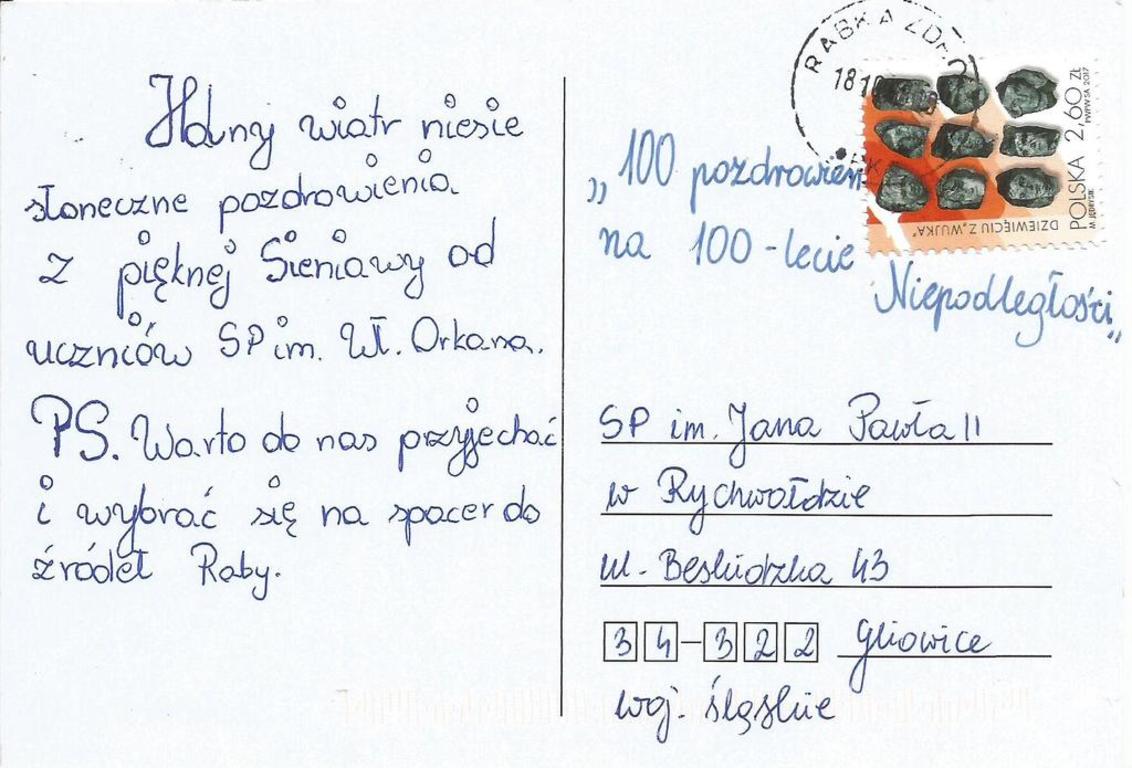 Halny wiatr niesie
słoneczne pozdrowienia
z pięknej Sieniawy od
uczniów SP im. Wł. Orkana.
PS. Warto do nas przyjechać
i wybrać się na spacer do
źródeł Raby.
RABKA ZDR
18 10
2
POLSKA 2,60 ZŁ
PWPW SA 2017
M. JĘDRYSIK
DZIEWIĘCIU Z „WUJKA”
„100 pozdrowień
na 100-lecie
Niepodległości„
SP im. Jana Pawła II
w Rychwałdzie
ul. Beskidzka 43
34-322 Gliowice
woj. śląskie